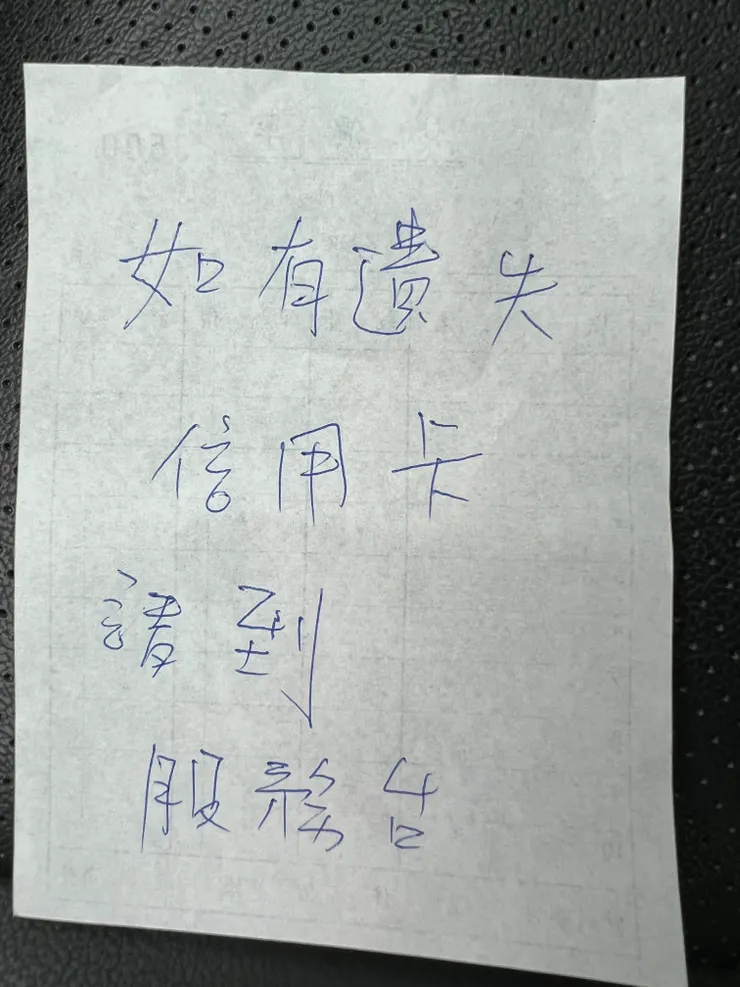 如有遺失
信用卡
請到
服務台